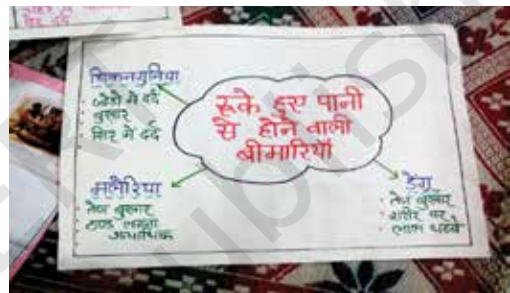 रूके हुए पानी
से होने वाली
बीमारियाँ
चिकनगुनिया
जोड़ो में दर्द
बुखार
सिर में दर्द
मलेरिया
तेज बुखार
ठण्ड लगना
अत्याधिक
डेंगू
तेज बुखार
शरीर पर
लाल धब्बे